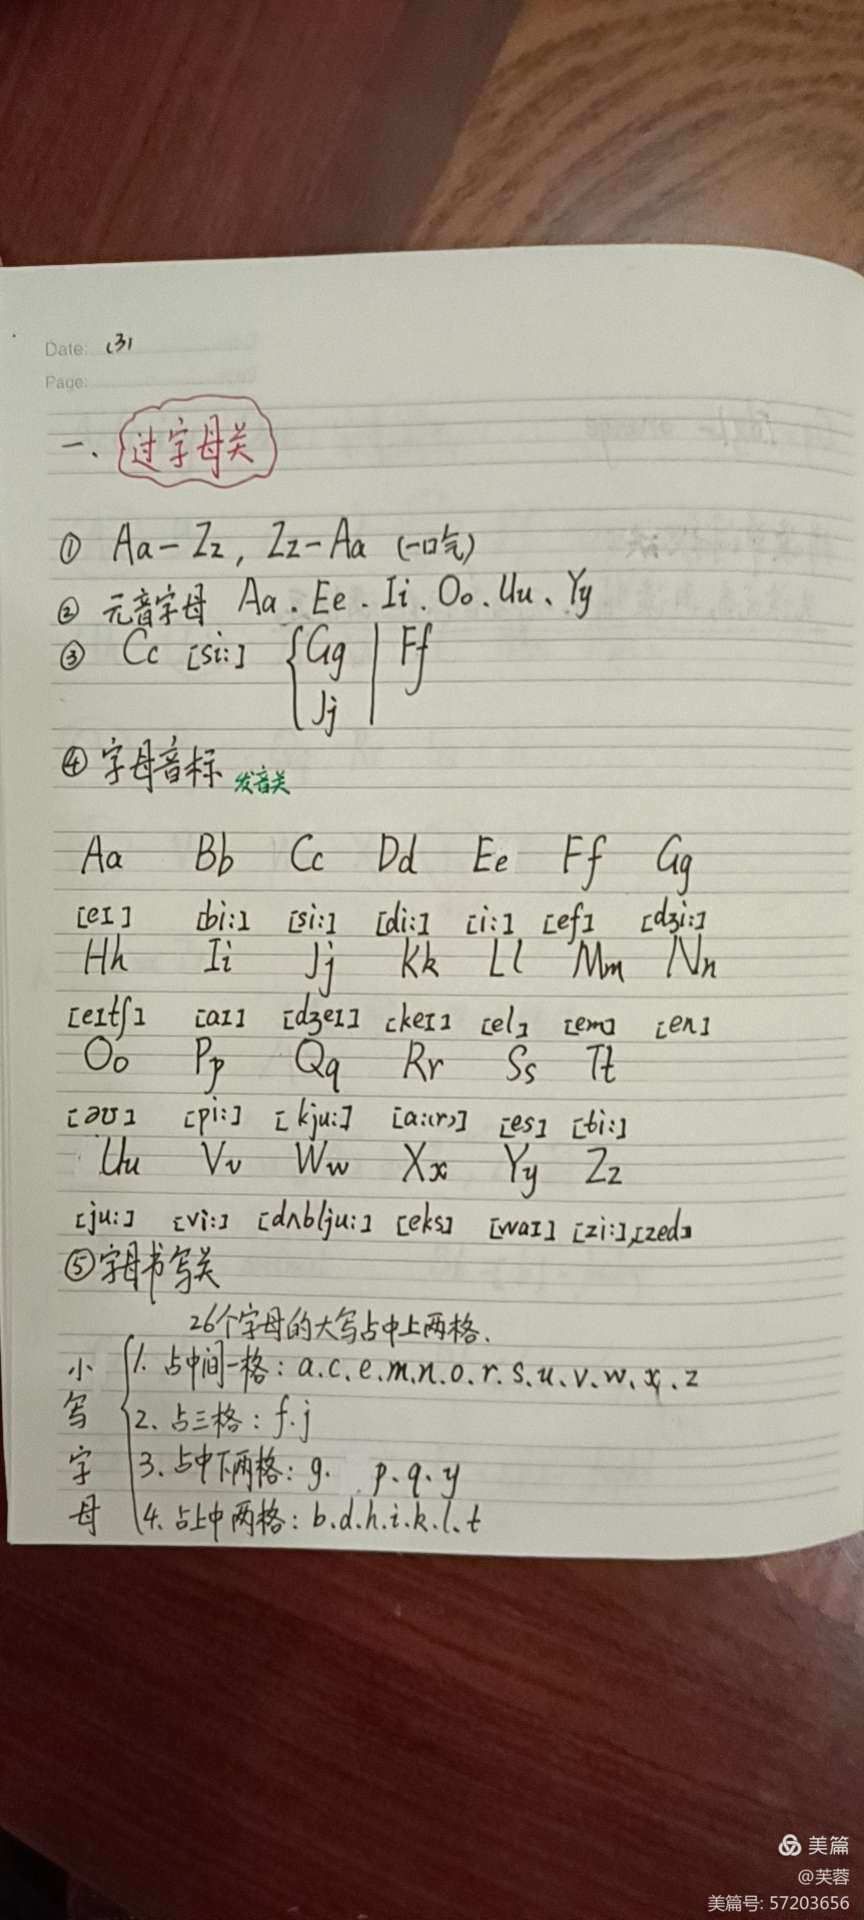 Date: (3)
Page:
一、过字母关
① Aa-Zz, Zz-Aa (一口气)
② 元音字母 Aa、Ee、Ii、Oo、Uu、Yy
③ Cc [si:] { Gg | Ff
Jj
④ 字母音标 发音关
Aa Bb Cc Dd Ee Ff Gg
[eɪ] [bi:] [si:] [di:] [i:] [ef] [dʒi:]
Hh Ii Jj Kk Ll Mm Nn
[eɪtʃ] [aɪ] [dʒeɪ] [keɪ] [el] [em] [en]
Oo Pp Qq Rr Ss Tt
[əʊ] [pi:] [kju:] [a:(r)] [es] [ti:]
Uu Vv Ww Xx Yy Zz
[ju:] [vi:] [dʌblju:] [eks] [waɪ] [zi:],[zed]
⑤字母书写关
26个字母的大写占中上两格.
小写字母
1. 占中间一格: a.c.e.m.n.o.r.s.u.v.w.x.z
2. 占三格: f.j
3. 占中下两格: g. p.q.y
4. 占上中两格: b.d.h.i.k.l.t
美篇
@芙蓉
美篇号: 57203656